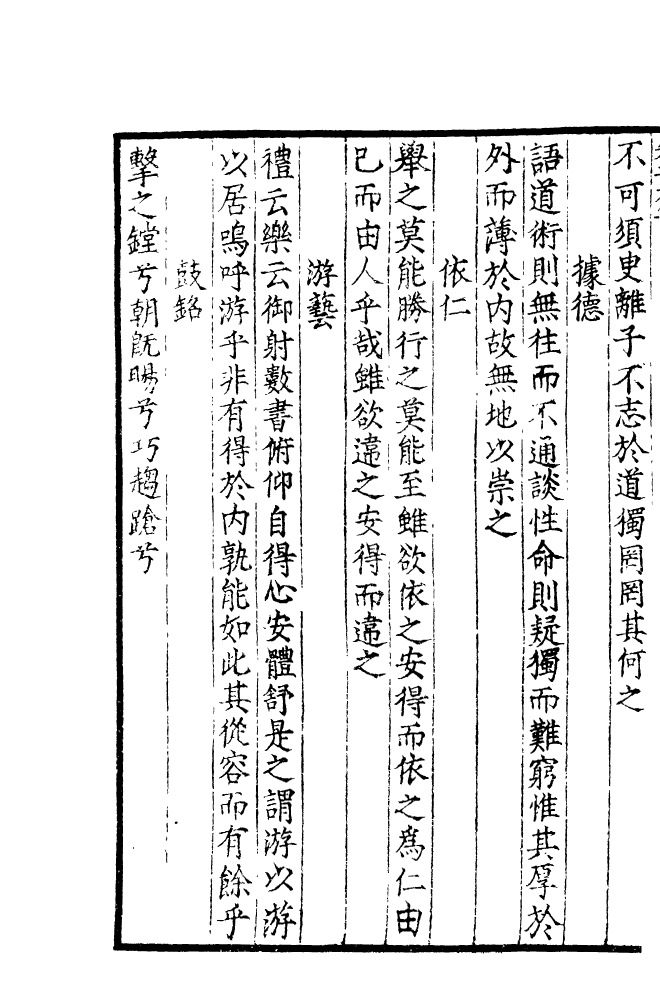 不可須臾離子不志於道獨罔罔其何之
據德
語道術則無往而不通談性命則疑獨而難窮惟其厚於
外而薄於内故無地以崇之
依仁
舉之莫能勝行之莫能至雖欲依之安得而依之為仁由
已而由人乎哉雖欲違之安得而違之
游藝
禮云樂云御射數書俯仰自得心安體舒是之謂游以游
以居嗚呼游乎非有得於内孰能如此其從容而有餘乎
鼓銘
擊之鏜兮朝旣暘兮巧趨蹌兮